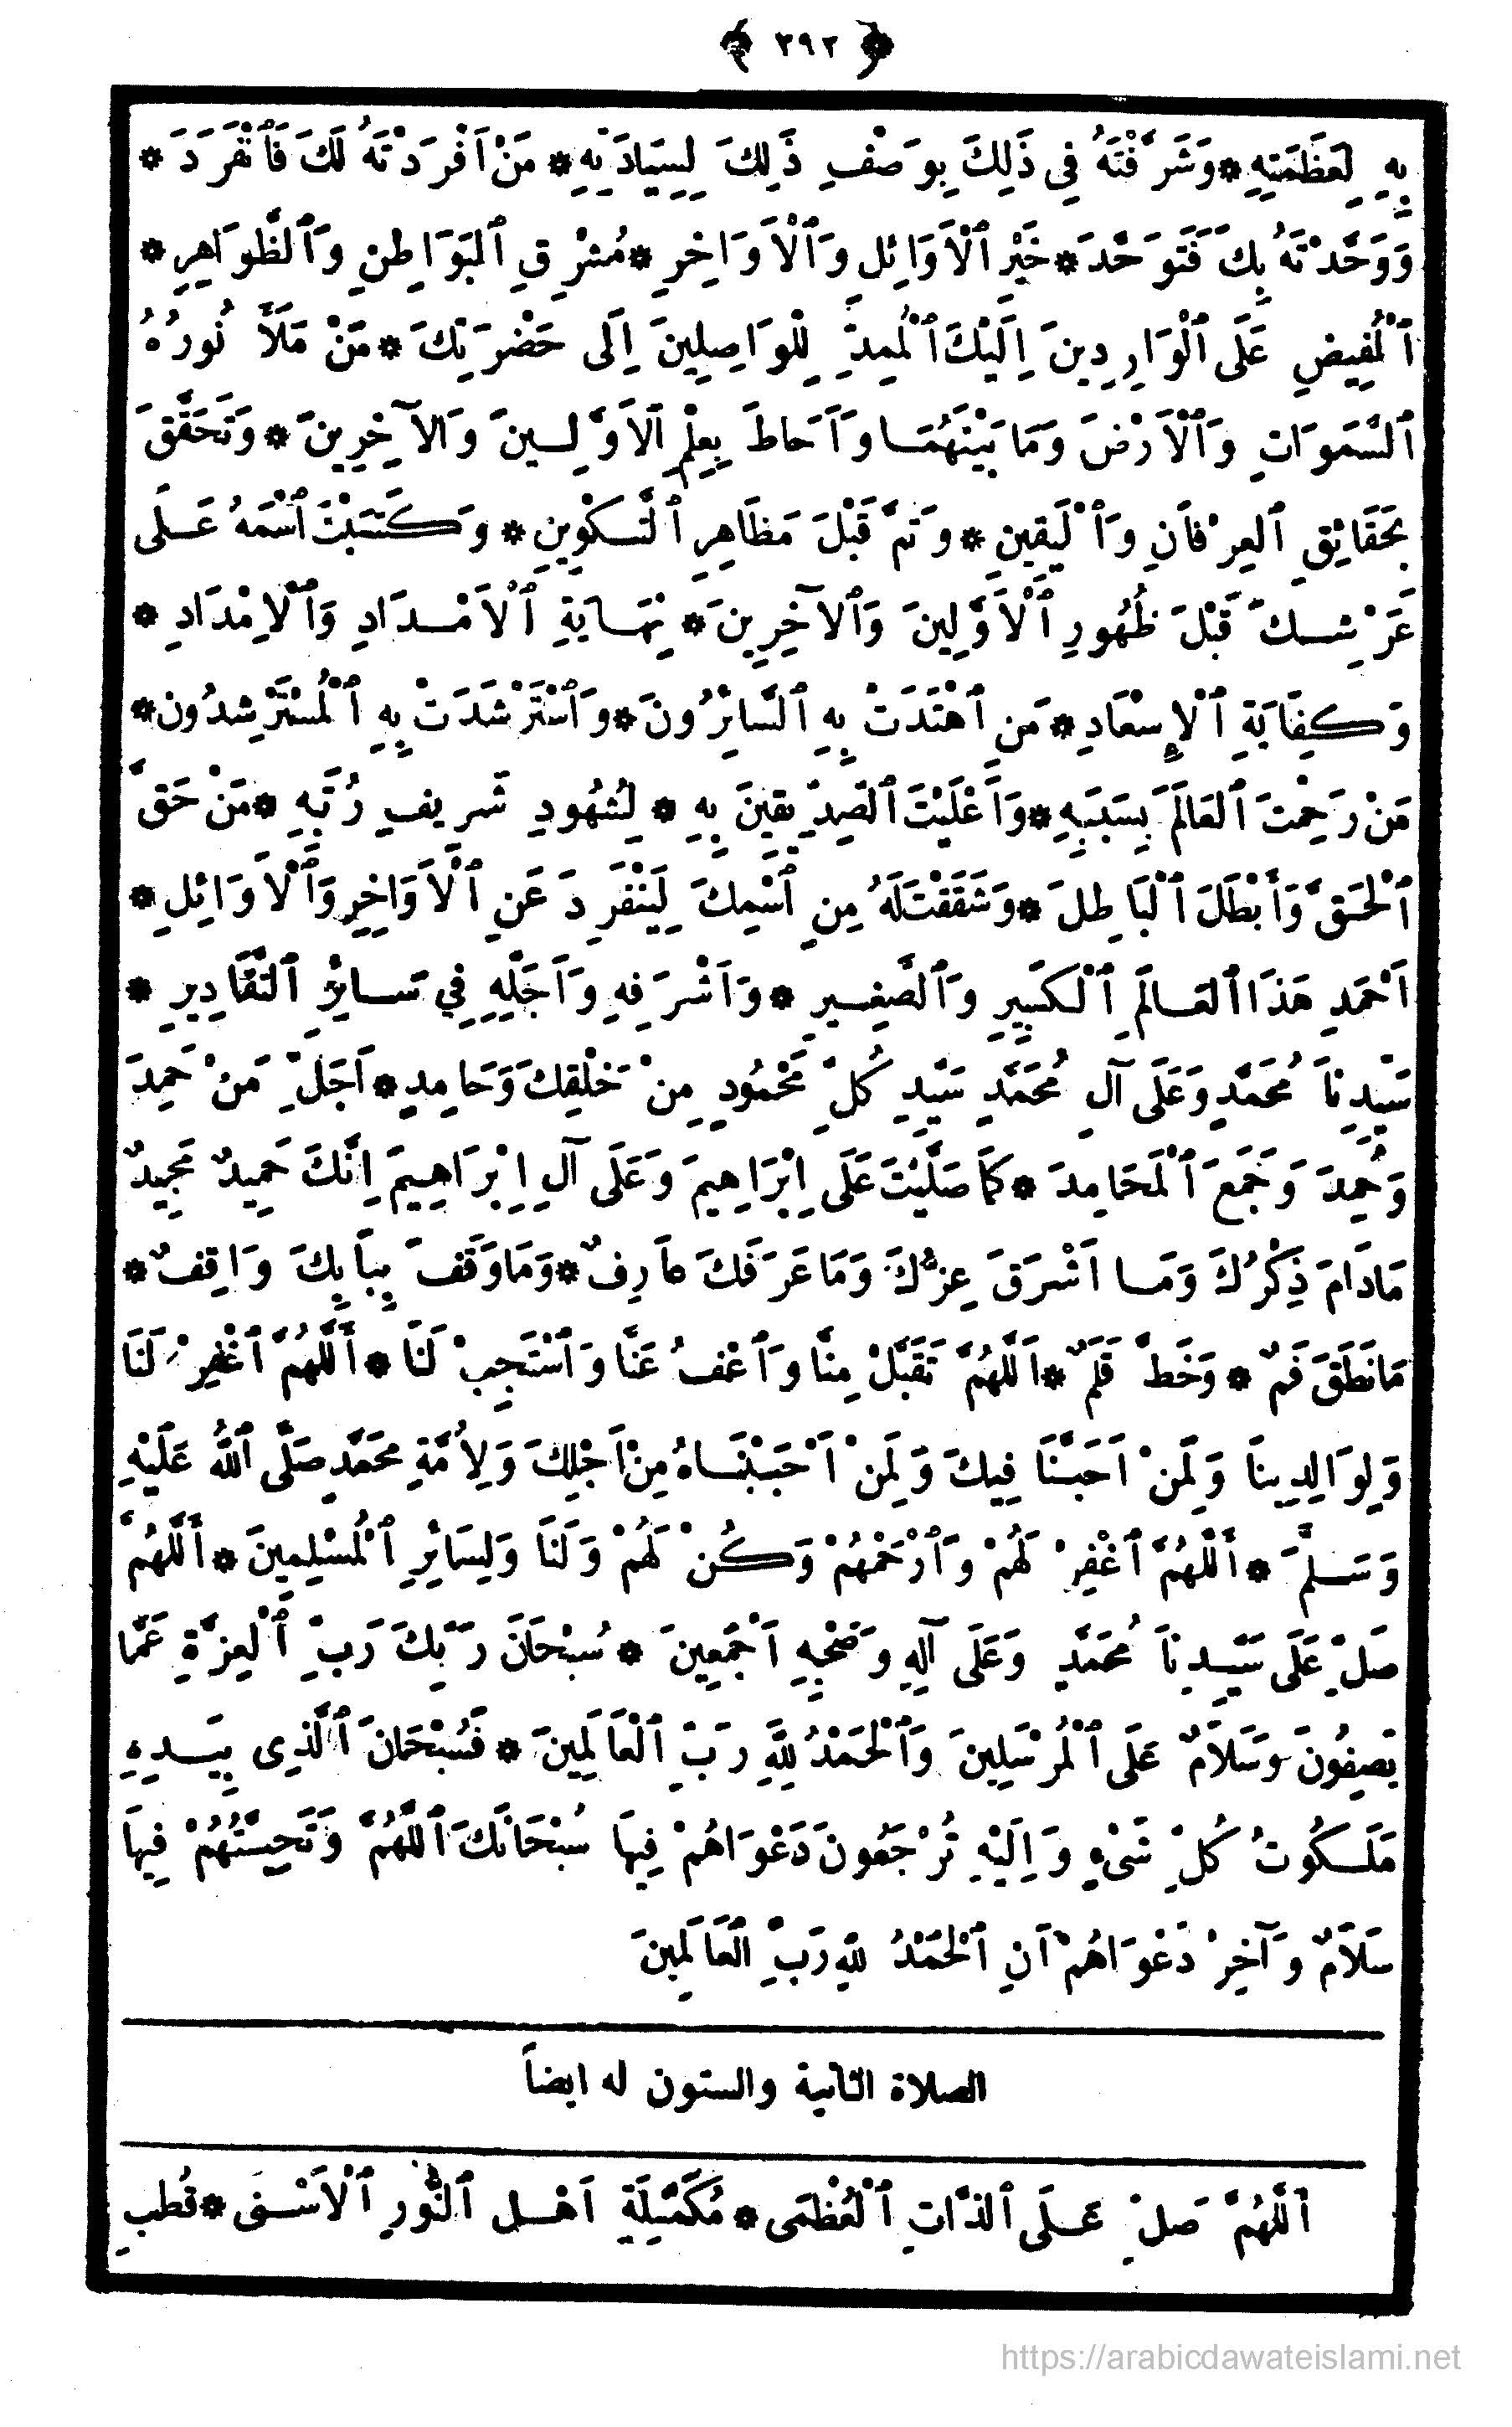 ﴿ ٢٩٢ ﴾
بِهِ لِعَظَمَتِهِ * وَشَرَّفْتَهُ فِي ذَلِكَ بِوَصْفِ ذَلِكَ لِسِيَادَتِهِ * مَنْ اَفْرَدْتَهُ لَكَ فَٱنْفَرَدَ *
وَوَحَّدْتَهُ بِكَ فَتَوَحَّدَ * خَيْرِ ٱلْأَوَائِلِ وَٱلْأَوَاخِرِ * مُشْرِقِ ٱلبَوَاطِنِ وَٱلظَّوَاهِرِ *
ٱلْمُفِيضِ عَلَى ٱلْوَارِدِينَ اِلَيْكَ ٱلْمُمِدِّ لِلْوَاصِلِينَ اِلَى حَضْرَتِكَ * مَنْ مَلَأَ نُورُهُ
ٱلسَّمَوَاتِ وَٱلْأَرْضَ وَمَا بَيْنَهُمَا وَاَحَاطَ بِعِلْمِ ٱلاَوَّلِينَ وَٱلآخِرِينَ * وَتَحَقَّقَ
بِحَقَائِقِ ٱلعِرْفَانِ وَٱلْيَقِينِ * وَتَمَّ قَبْلَ مَظَاهِرِ ٱلتَّكْوِينِ * وَكَتَبْتَ ٱسْمَهُ عَلَى
عَرْشِكَ قَبْلَ ظُهُورِ ٱلْأَوَّلِينَ وَٱلآخِرِينَ * نِهَايَةِ ٱلْاَمْدَادِ وَٱلْاِمْدَادِ *
وَكِفَايَةِ ٱلْإِسْعَادِ * مَنِ ٱهْتَدَتْ بِهِ ٱلسَّائِرُونَ * وَٱسْتَرْشَدَتْ بِهِ ٱلْمُسْتَرْشِدُونَ *
مَنْ رَحِمْتَ ٱلعَالَمَ بِسَبَبِهِ * وَاَعْلَيْتَ ٱلصِّدِّيقِينَ بِهِ * لِشُهُودِ شَرِيفِ رُتَبِهِ * مَنْ حَقَّ
ٱلْحَقَّ وَأَبْطَلَ ٱلْبَاطِلَ * وَشَقَقْتَ لَهُ مِنِ ٱسْمِكَ لِيَنْفَرِدَ عَنِ ٱلْأَوَاخِرِ وَٱلْأَوَائِلِ *
اَحْمَدِ هَذَا ٱلعَالَمِ ٱلْكَبِيرِ وَٱلصَّغِيرِ * وَاَشْرَفِهِ وَاَجَلِّهِ فِي سَائِرِ ٱلتَّقَادِيرِ *
سَيِّدِنَا مُحَمَّدٍ وَعَلَى آلِ مُحَمَّدٍ سَيِّدِ كُلِّ مَحْمُودٍ مِنْ خَلْقِكَ وَحَامِدٍ * اَجَلِّ مَنْ حَمِدَ
وَحُمِدَ وَجَمَعَ ٱلْمَحَامِدَ * كَمَا صَلَّيْتَ عَلَى اِبْرَاهِيمَ وَعَلَى آلِ اِبْرَاهِيمَ اِنَّكَ حَمِيدٌ مَجِيدٌ
مَادَامَ ذِكْرُكَ وَمَا اَشْرَقَ عِزُّكَ وَمَا عَرَفَكَ عَارِفٌ * وَمَا وَقَفَ بِبَابِكَ وَاقِفٌ *
مَا نَطَقَ فَمٌ * وَخَطَّ قَلَمٌ * اَللَّهُمَّ تَقَبَّلْ مِنَّا وَٱعْفُ عَنَّا وَٱسْتَجِبْ لَنَا * أَللَّهُمَّ ٱغْفِرْ لَنَا
وَلِوَالِدِينَا وَلِمَنْ اَحَبَّنَا فِيكَ وَلِمَنْ اَحْبَبْنَاهُ مِنْ اَجْلِكَ وَلِأُمَّةِ مُحَمَّدٍ صَلَّى ٱللهُ عَلَيْهِ
وَسَلَّمَ * أَللَّهُمَّ ٱغْفِرْ لَهُمْ وَٱرْحَمْهُمْ وَكُنْ لَهُمْ وَلَنَا وَلِسَائِرِ ٱلْمُسْلِمِينَ * أَللَّهُمَّ
صَلِّ عَلَى سَيِّدِنَا مُحَمَّدٍ وَعَلَى آلِهِ وَصَحْبِهِ اَجْمَعِينَ * سُبْحَانَ رَبِّكَ رَبِّ ٱلْعِزَّةِ عَمَّا
يَصِفُونَ وَسَلَامٌ عَلَى ٱلْمُرْسَلِينَ وَٱلْحَمْدُ لِلَّهِ رَبِّ ٱلْعَالَمِينَ * فَسُبْحَانَ ٱلَّذِى بِيَدِهِ
مَلَكُوتُ كُلِّ شَىْءٍ وَاِلَيْهِ تُرْجَعُونَ دَعْوَاهُمْ فِيهَا سُبْحَانَكَ ٱللَّهُمَّ وَتَحِيَّتُهُمْ فِيهَا
سَلَامٌ وَآخِرُ دَعْوَاهُمْ اَنِ ٱلْحَمْدُ لِلهِ رَبِّ ٱلعَالَمِينَ
الصلاة الثانية والستون له ايضاً
اَللَّهُمَّ صَلِّ عَلَى ٱلذَّاتِ ٱلْعُظْمَى * مُكَمِّلَةِ اَهْلِ ٱلنُّورِ ٱلْاَسْنَى * قُطْبِ
https://arabicdawateislami.net